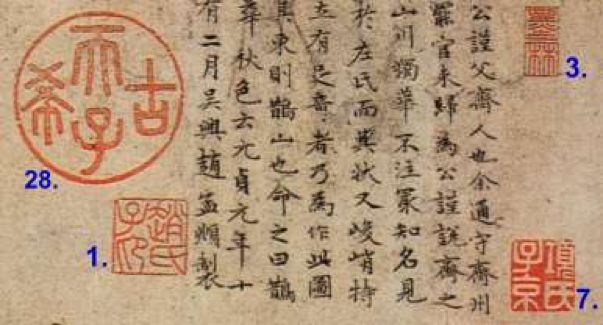 3.
墨林
公謹父齊人也余通守齊州
罷官來歸為公謹說齊之
山川獨華不注冣知名見
於左氏而其狀又峻峭特
立有足奇者乃為作此圖
其東則鵲山也命之曰鵲
華秋色云元貞元年十
有二月吳興趙孟頫製
7.
項氏
子京
28.
古希天子
1.
趙氏
子昂